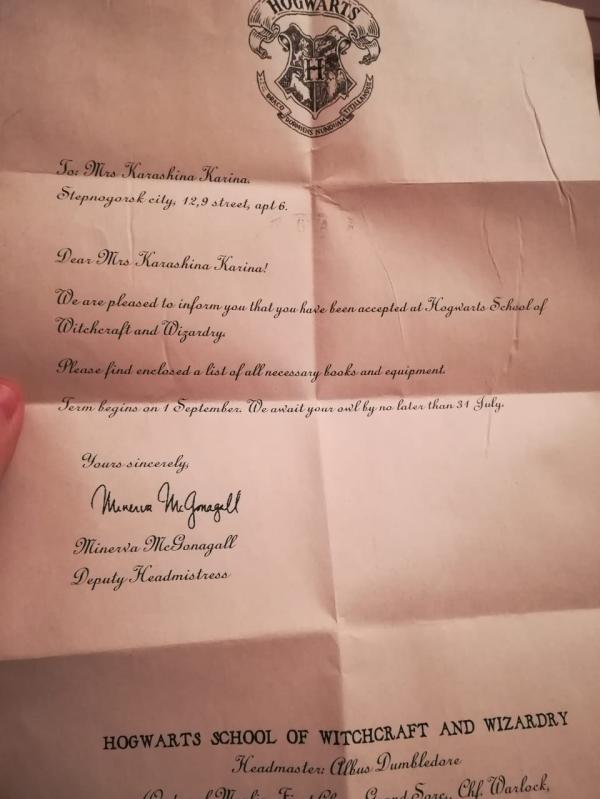 HOGWARTS
H
DRACO DORMIENS NUNQUAM TITILLANDUS
To: Mrs Karashina Karina,
Stepnogorsk city, 12,9 street, apt 6.
Dear Mrs Karashina Karina!
We are pleased to inform you that you have been accepted at Hogwarts School of
Witchcraft and Wizardry.
Please find enclosed a list of all necessary books and equipment.
Term begins on 1 September. We await your owl by no later than 31 July.
Yours sincerely,
Minerva McGonagall
Minerva McGonagall
Deputy Headmistress
HOGWARTS SCHOOL OF WITCHCRAFT AND WIZARDRY
Headmaster: Albus Dumbledore
(Order of Merlin, First Class, Grand Sorc., Chf. Warlock,